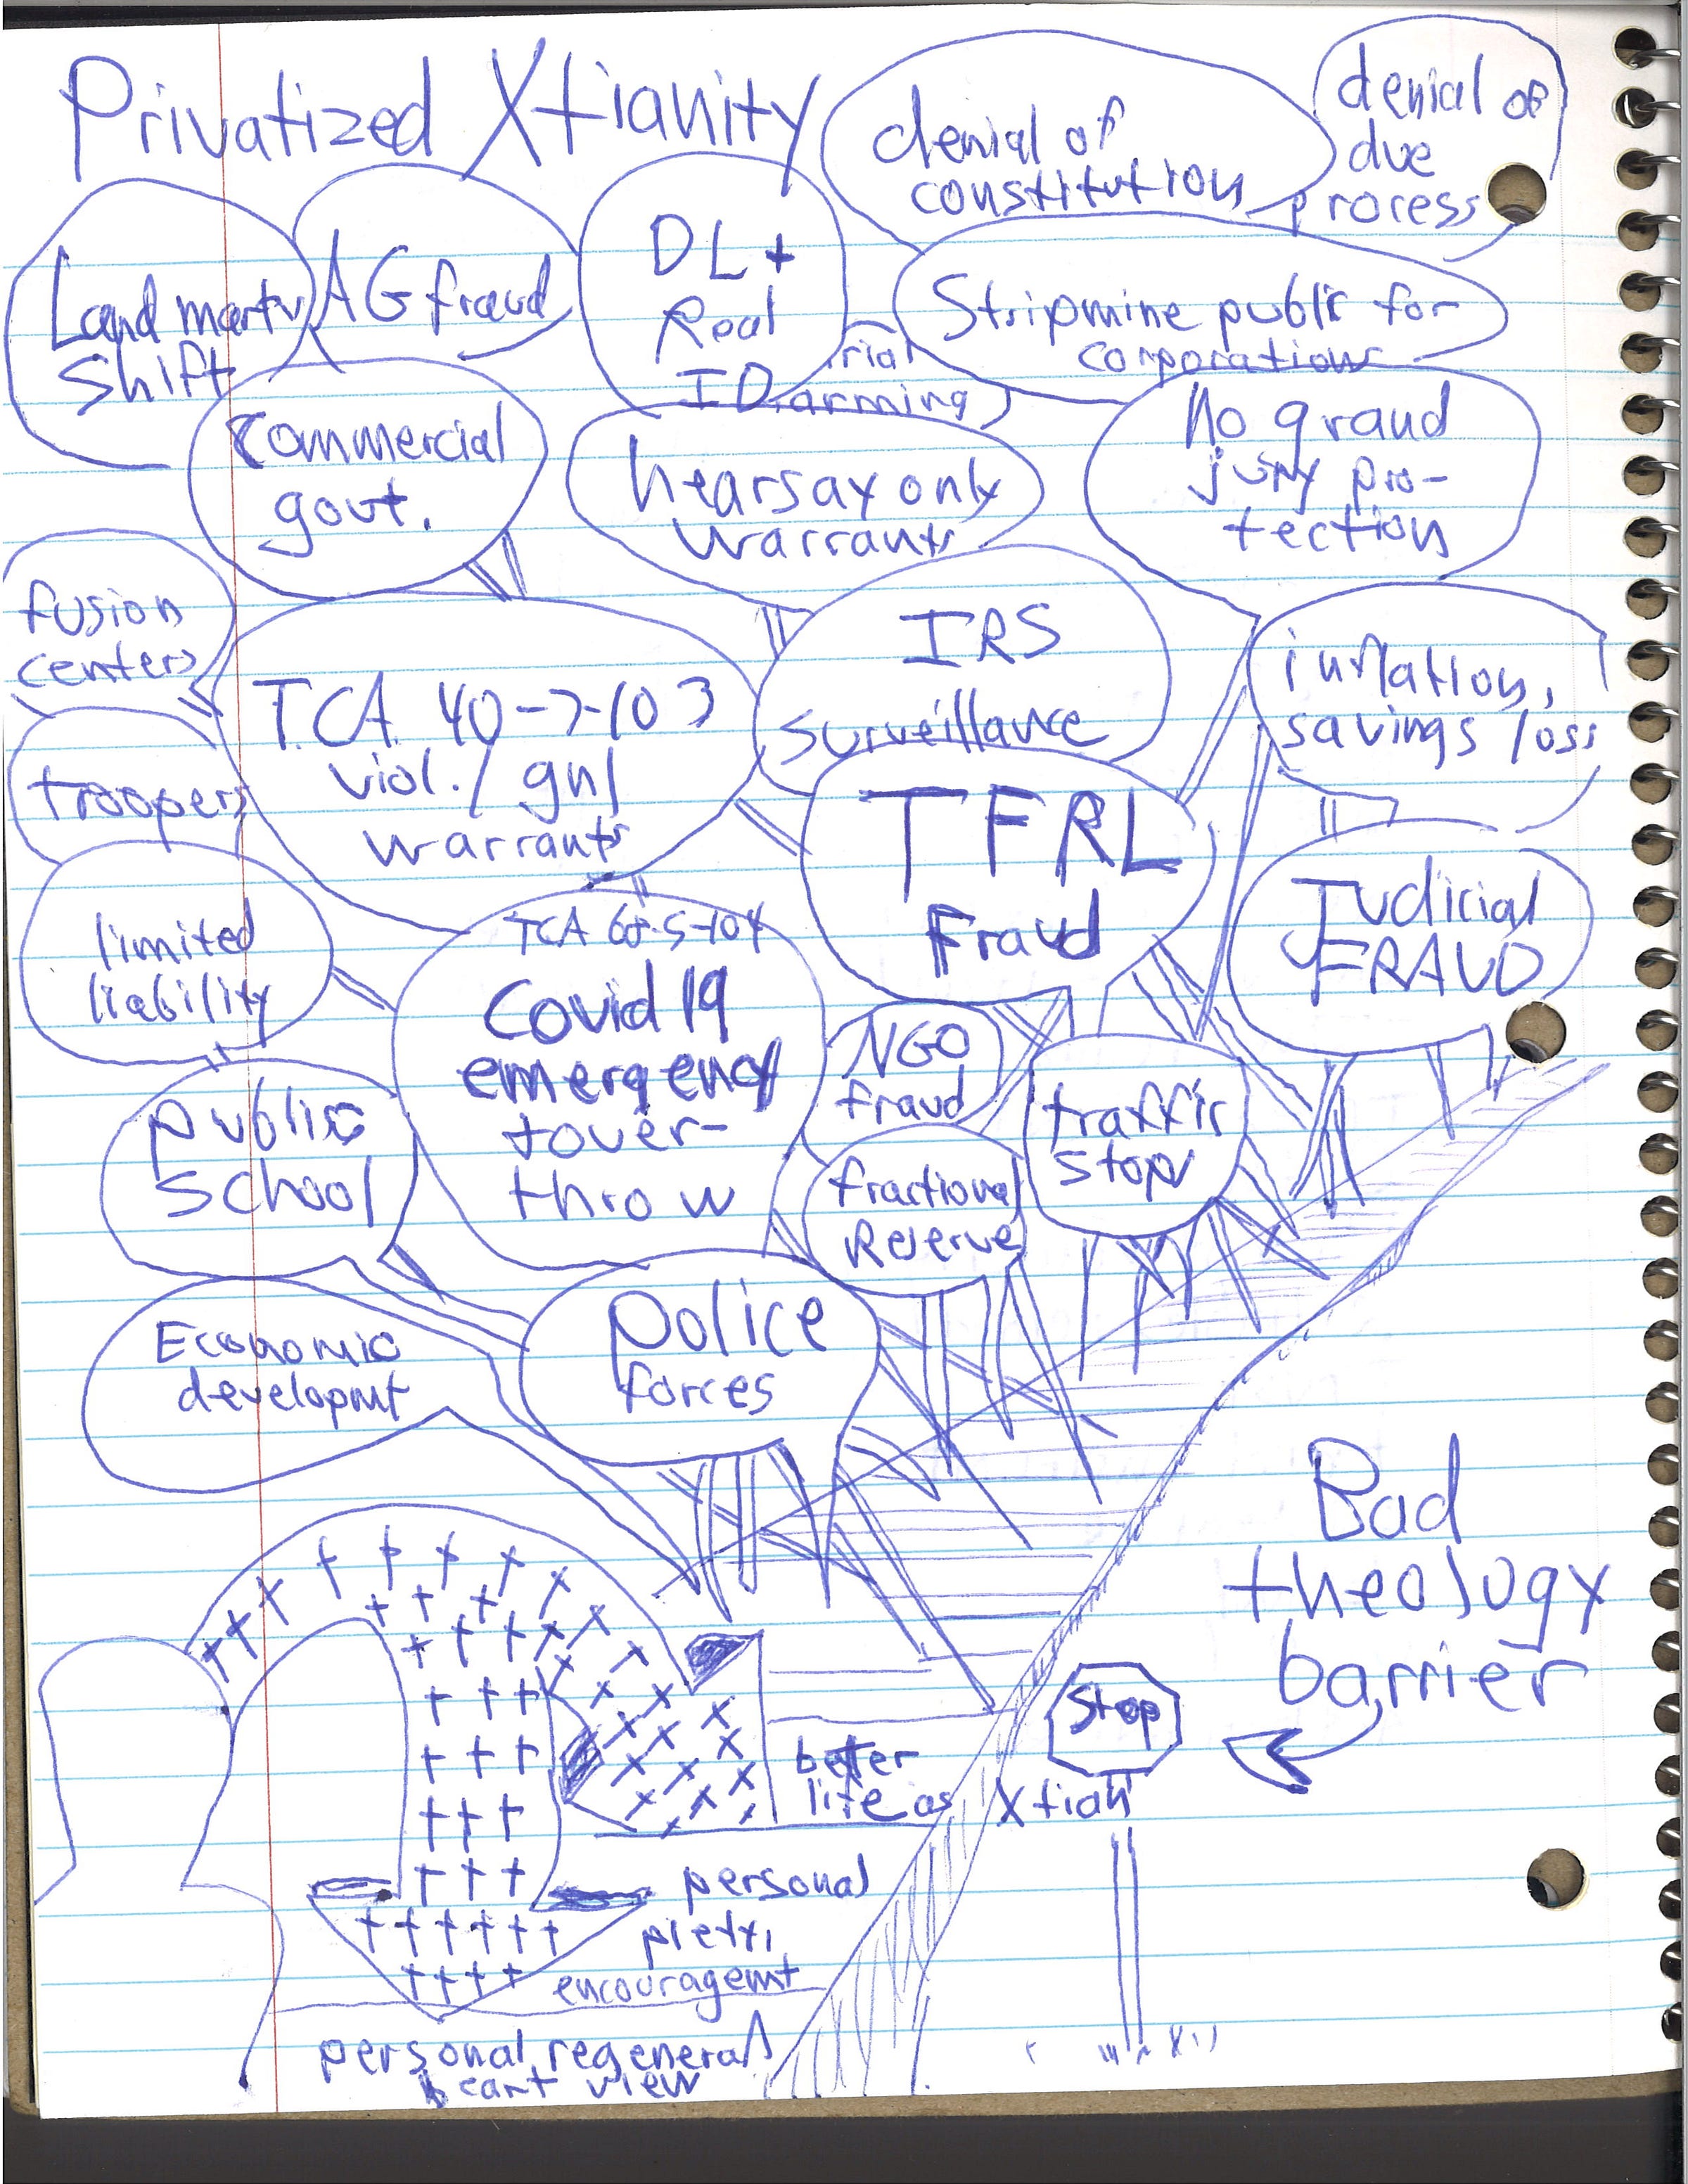 Privatized Xtianity
denial of
constitution
denial of
due
process
Land mark
Shift
AG fraud
DL +
Real
ID
rial
arming
Stripmine public for
corporations
Commercial
govt.
hearsay only
warrants
No grand
jury pro-
tection
fusion
centers
troopers
TCA 40-7-103
viol./gnl
warrants
IRS
surveillance
inflation,
savings loss
TFRL
Fraud
Judicial
FRAUD
limited
liability
TCA 68-5-104
Covid 19
emergency
tover-
throw
NGO
fraud
traffic
stop
public
school
fractional
Reserve
Economic
developmt
police
forces
Bad
theology
barrier
Stop
better
life as Xtian
personal
piety,
encouragemt
personal, regenera
heart view